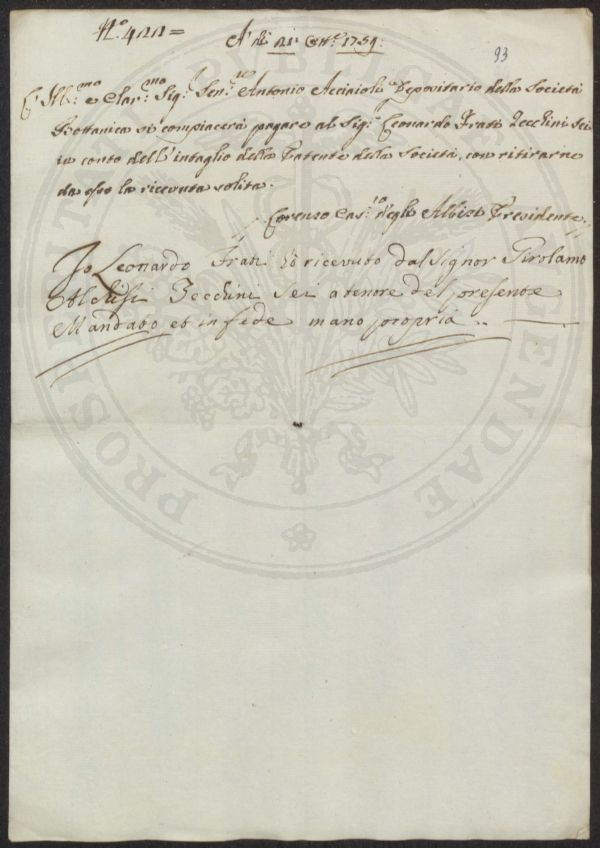 N.o 422=
A' dì 21 Ott.e 1759.
93
L'Ill.mo e Clar.mo Sig. Sen.re Antonio Acciaioli Depositario della Società
Bottanica si compiacerà pagare al Sig. Leonardo Frati Zecchini Sei
in conto dell'intaglio della Patente della Società, con ritirarne
da esso la ricevuta solita.
Lorenzo degli Albizi Presidente
Jo Leonardo Frati ò ricevuto dal Signor Girolamo
Zecchini Sei a tenore del presente
Mandato et in fede mano propria
PROSPERITATI PUBLICAE AUGENDAE